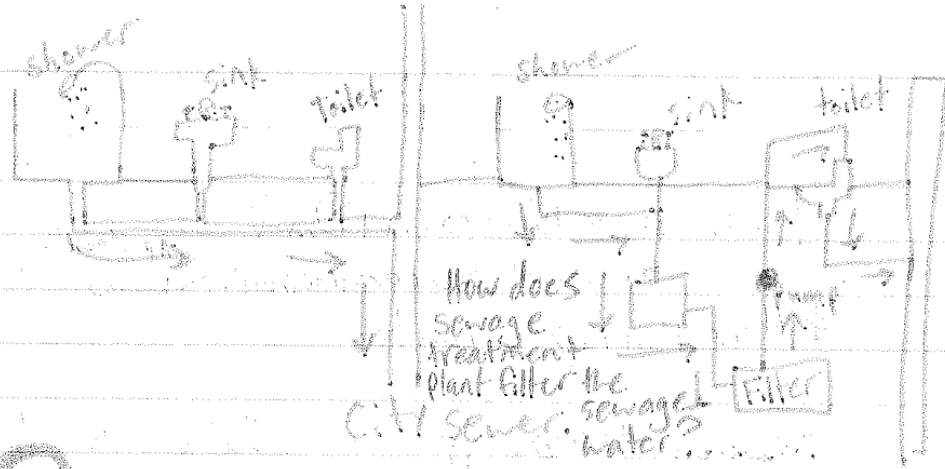 shower
sink
Toilet
shower
sink
toilet
How does
sewage
treatment
plant filter the
sewaged
water?
pump
Filter
City Sewer